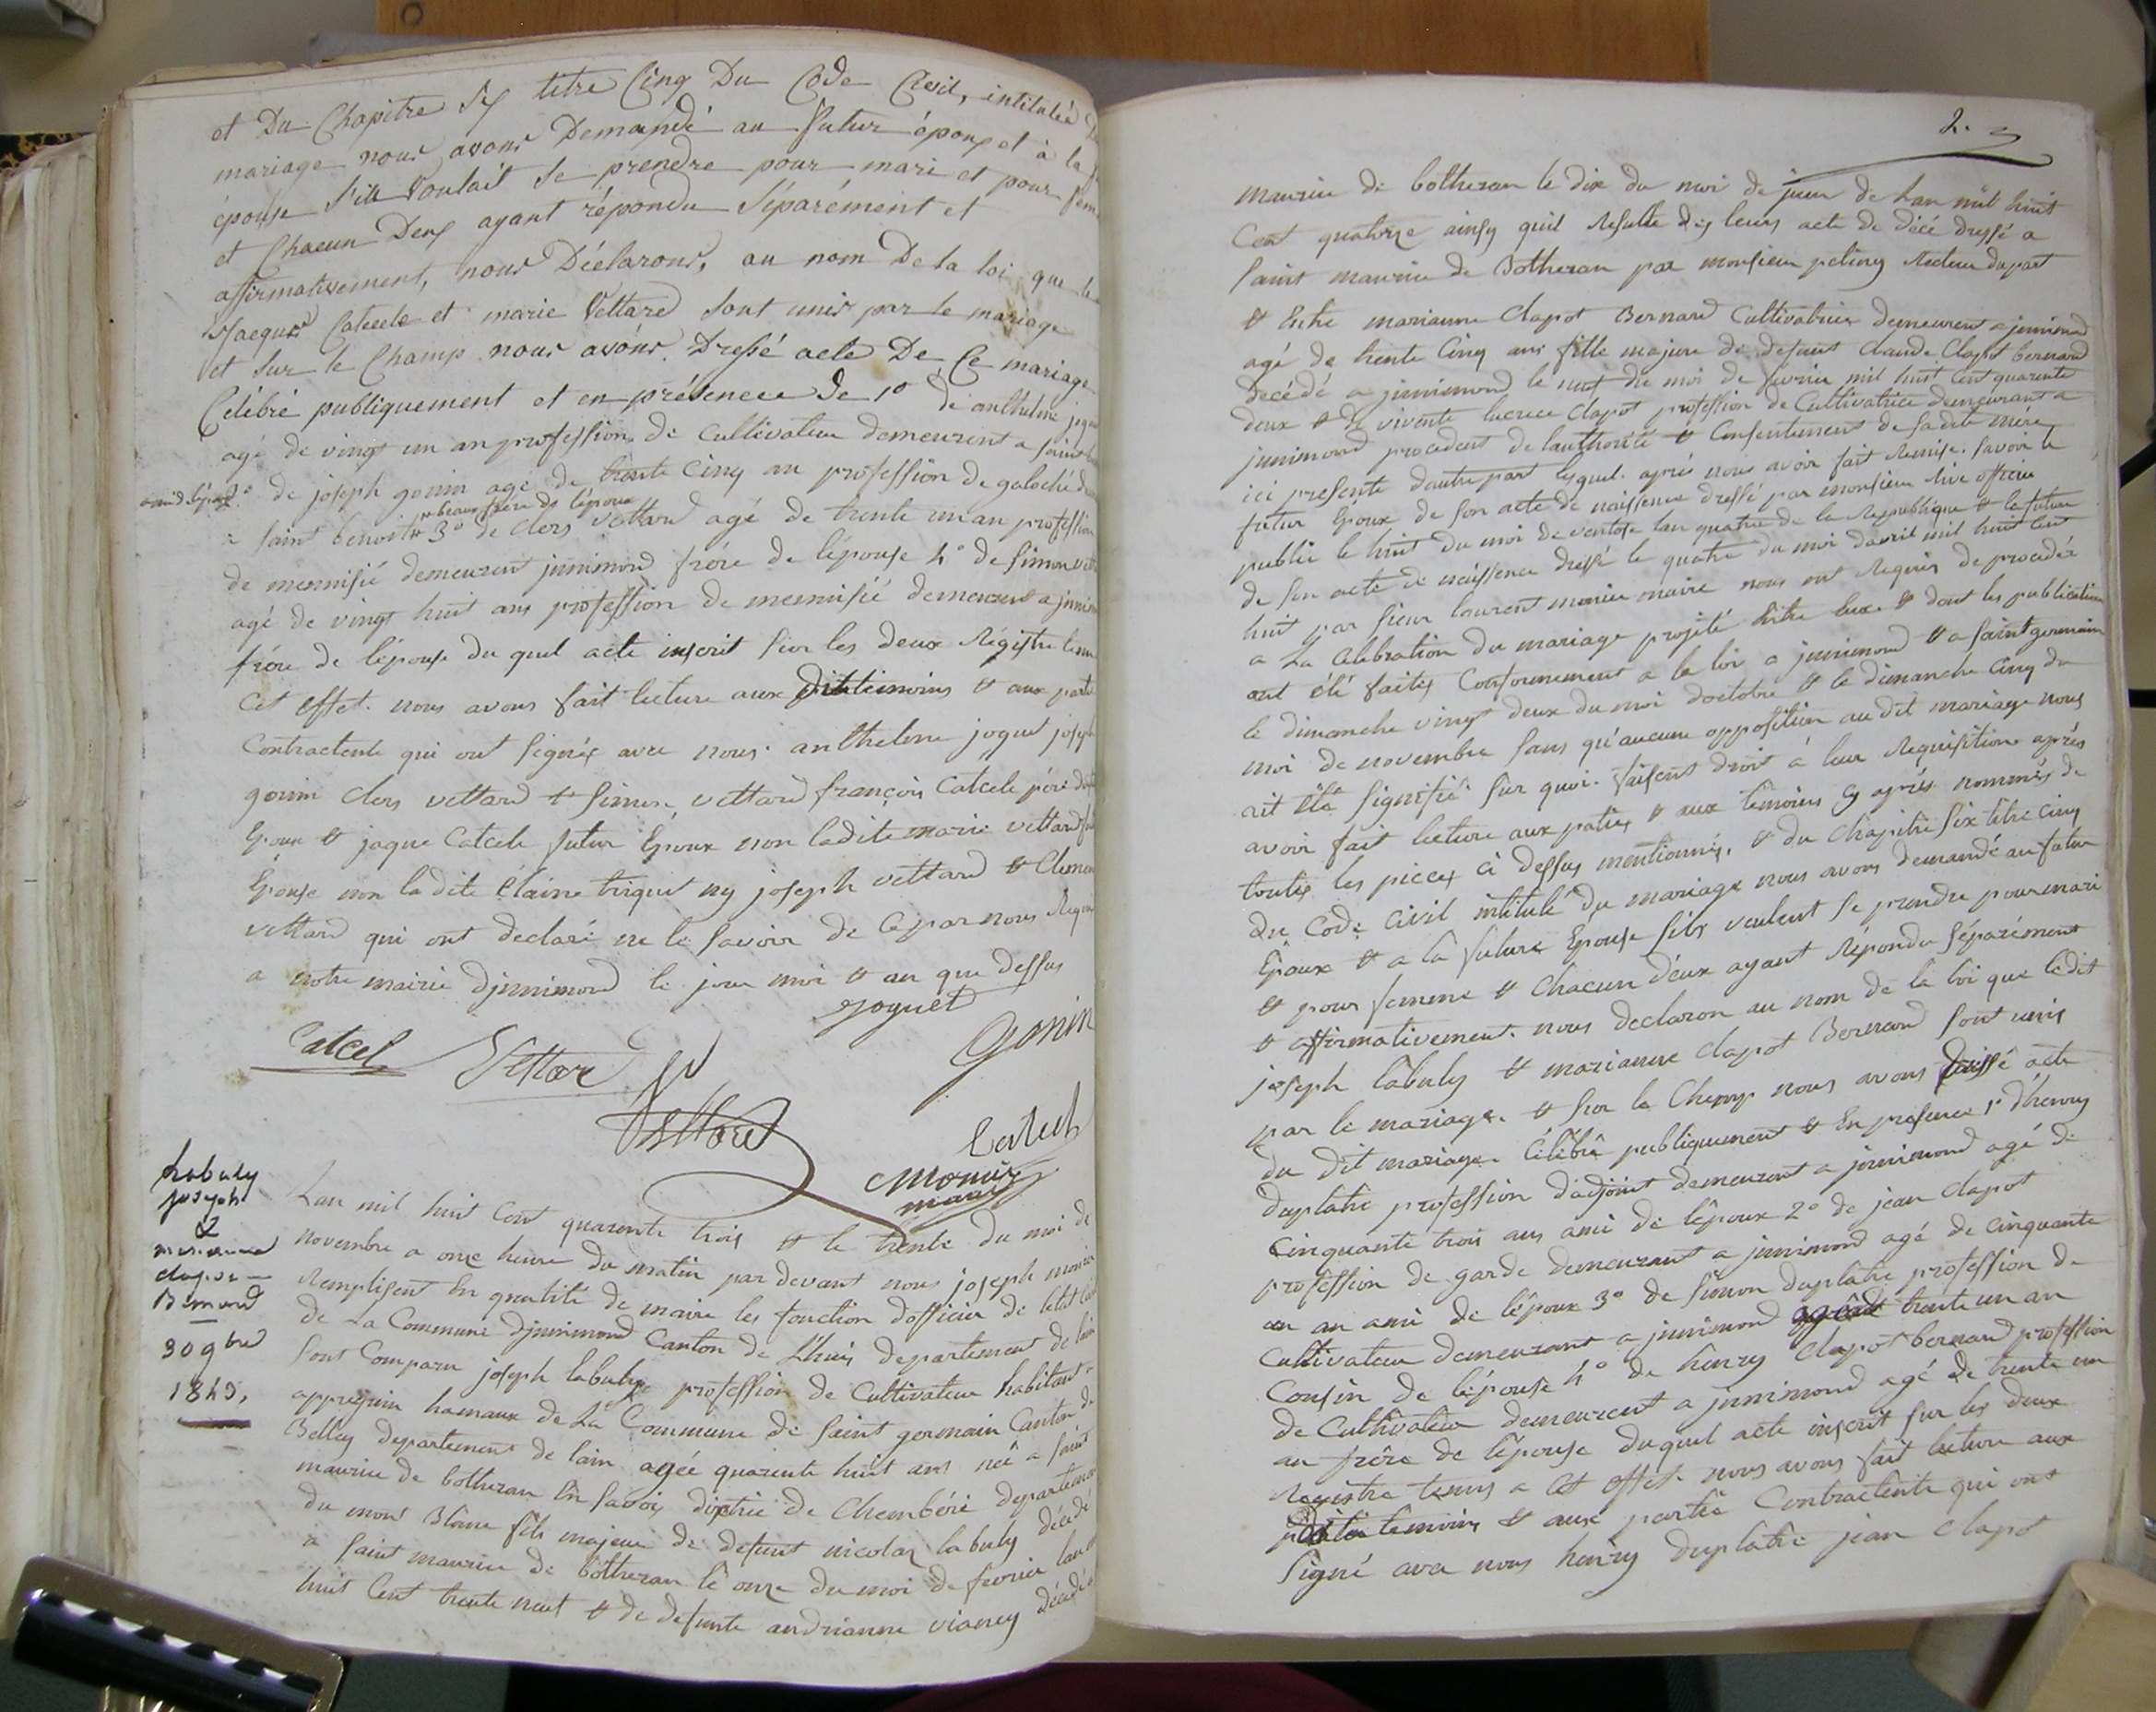 et Du Chapitre Six titre Cinq Du Code Civil, intitulée
mariage nous avons Demandé au futur époux et à la
épouse s'ils voulait se prendre pour mari et pour fem
et Chacun Deux ayant répondu Séparément et
affirmativement, nous Déclarons, au nom De la loi que
Jacques Catcele et marie Vettard sont unis par le mariage
et sur le Champ nous avons Dressé acte De Ce mariage
Célébré publiquement et en présence de 1º de anthelme
agé de vingt un an profession de Cultivateur demeurent a saint
ami de lépoux 2º de joseph gonin agé de trente cinq an profession de
a saint benoit beau frère de lépoux 3º de Clers vettard agé de trente un an profession
de menuisié demeurent jnnimond frére de lépouse 4º de Simon
agé de vingt huit ans profession de menuisié demeurent a
frére de lépouse du quel acte inscrit sur les deux Régistre
Cet effet. nous avons fait lecture aux dit temoins & aux
Contractente qui ont signés avec nous. anthelme joguet
gonin Clers vettard & Simon vettard françois Catcele pére
Epoux & jaque Catcele futur Epoux non ladite marie vettard
Epouse non la dite Claine triquet ny joseph vettard &
vettard qui ont declaré ne le Savoir de Ce par nous
a notre mairie djnnimond le jour moi & an que dessus
joguet
Gonin
Catcel Vettar
Vettard
Monier
maire
Labuly
joseph
&
marianne
clapot
Bernard
30 9bre
1843,
Lan mil huit Cent quarente trois & le trente du moi de
novembre a onze heure du matin par devant nous joseph monier
Remplisent En qualité de maire les fonction dofficier de
de La Commune djnnimond Canton de Lhuis departement de
Sont Comparu joseph labuly profession de Cultivateur habitant
hamaux de La Commune de Saint germain Canton de
Belley departement de lain agée quarente huit ans né a Saint
maurice de botheran En Savoy de Chembérie
du mont Blanc fils majeur de defunt nicolas labuly décédé
a Saint maurice de botheran le onze du moi de fevrier
huit Cent trente neuf & de defunte andrianne vianey décédé
2.
maurice de botheran le dix du moi de juin de Lan mil huit
Cent quatorze ainsy quil Résulte des leurs acte de décé dressé a
Saint maurice de Botheran par monsieur Recteur dupart
& Entre marianne Clapot Bernard Cultivatrice demeurent a jnnimond
agé de trente Cinq ans fille majeure de defunt Claude Clapot bernard
décédé a jnnimond le neuf du moi de fevrier mil huit Cent quarente
deux & de vivente lucrece Clapot profession de Cultivatrice demeurant a
jnnimond procedent de lauthorité & Consentement de Sadite mére
ici presente dautre part lesquel. aprés nous avoir fait Remise. savoir le
futur Epoux de Son acte de naissence dressé par monsieur officier
public le huit du moi de ventose lan quatre de la Republique & la future
de Son acte de naissence dressé le quatre du moi davril mil huit Cent
huit par Sieur laurent monier maire nous ont Requis de procedér
a La Celebration du mariage projeté Entre Eux. & dont les publication
ont été faites Conformement a la loi a jnnimond & a Saint germain
le dimanche vingt deux du moi doctobre & le dimanche Cinq du
moi de novembre Sans qu'aucune opposition au dit mariage nous
ait été Signifié Sur quoi. faisent droit à leur Requisition aprés
avoir fait lecture aux partie & aux témoins Cy aprés nommés de
toutes les pieces ci dessus mentionnés. & du Chapitre Six titre Cinq
du Code Civil intitulé du mariage nous avons demandé au futur
Epoux & a la future Epouse sils veulent Se prendre pour mari
& pour femme & Chacun d'eux ayant Répondu Séparément
& affirmativement. nous declaron au nom de la loi que ledit
joseph labuly & marianne Clapot Bernard Sont unis
par le mariage. & Sur le Champ nous avons acte
du dit mariage Célébré publiquement & En presence 1º d'henry
duplatre profession d'adjoint demeurent a jnnimond agé de
Cinquante trois ans ami de lépoux 2º de jean Clapot
profession de garde demeurant a jnnimond agé de cinquante
un an ami de lépoux 3º de Simon duplatre profession de
Cultivateur demeurant a jnnimond trente un an
Cousin de lépouse 4º de henry Clapot bernard profession
de Cultivateur demeurent a jnnimond agé de trente un
an frére de lépouse duquel acte inscrit sur les deux
Registre tenus a Cet effet. nous avons fait lecture aux
temoins & aux partie Contractente qui ont
Signé avec nous henry duplatre jean Clapot